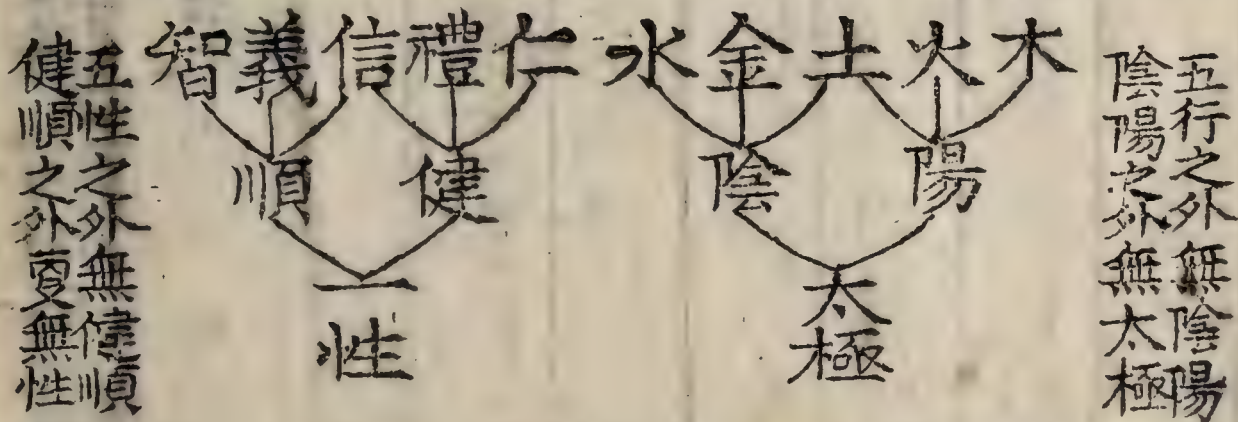 五行之外無陰陽
陰陽之外無太極
木火土金水
陽陰
太極
仁禮信義智
健順
一性
五性之外無健順
健順之外更無性